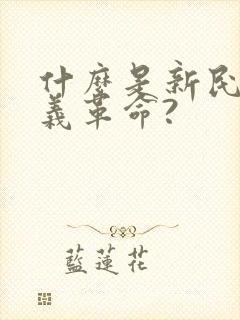 什麼是新民
義革命?
藍蓮花